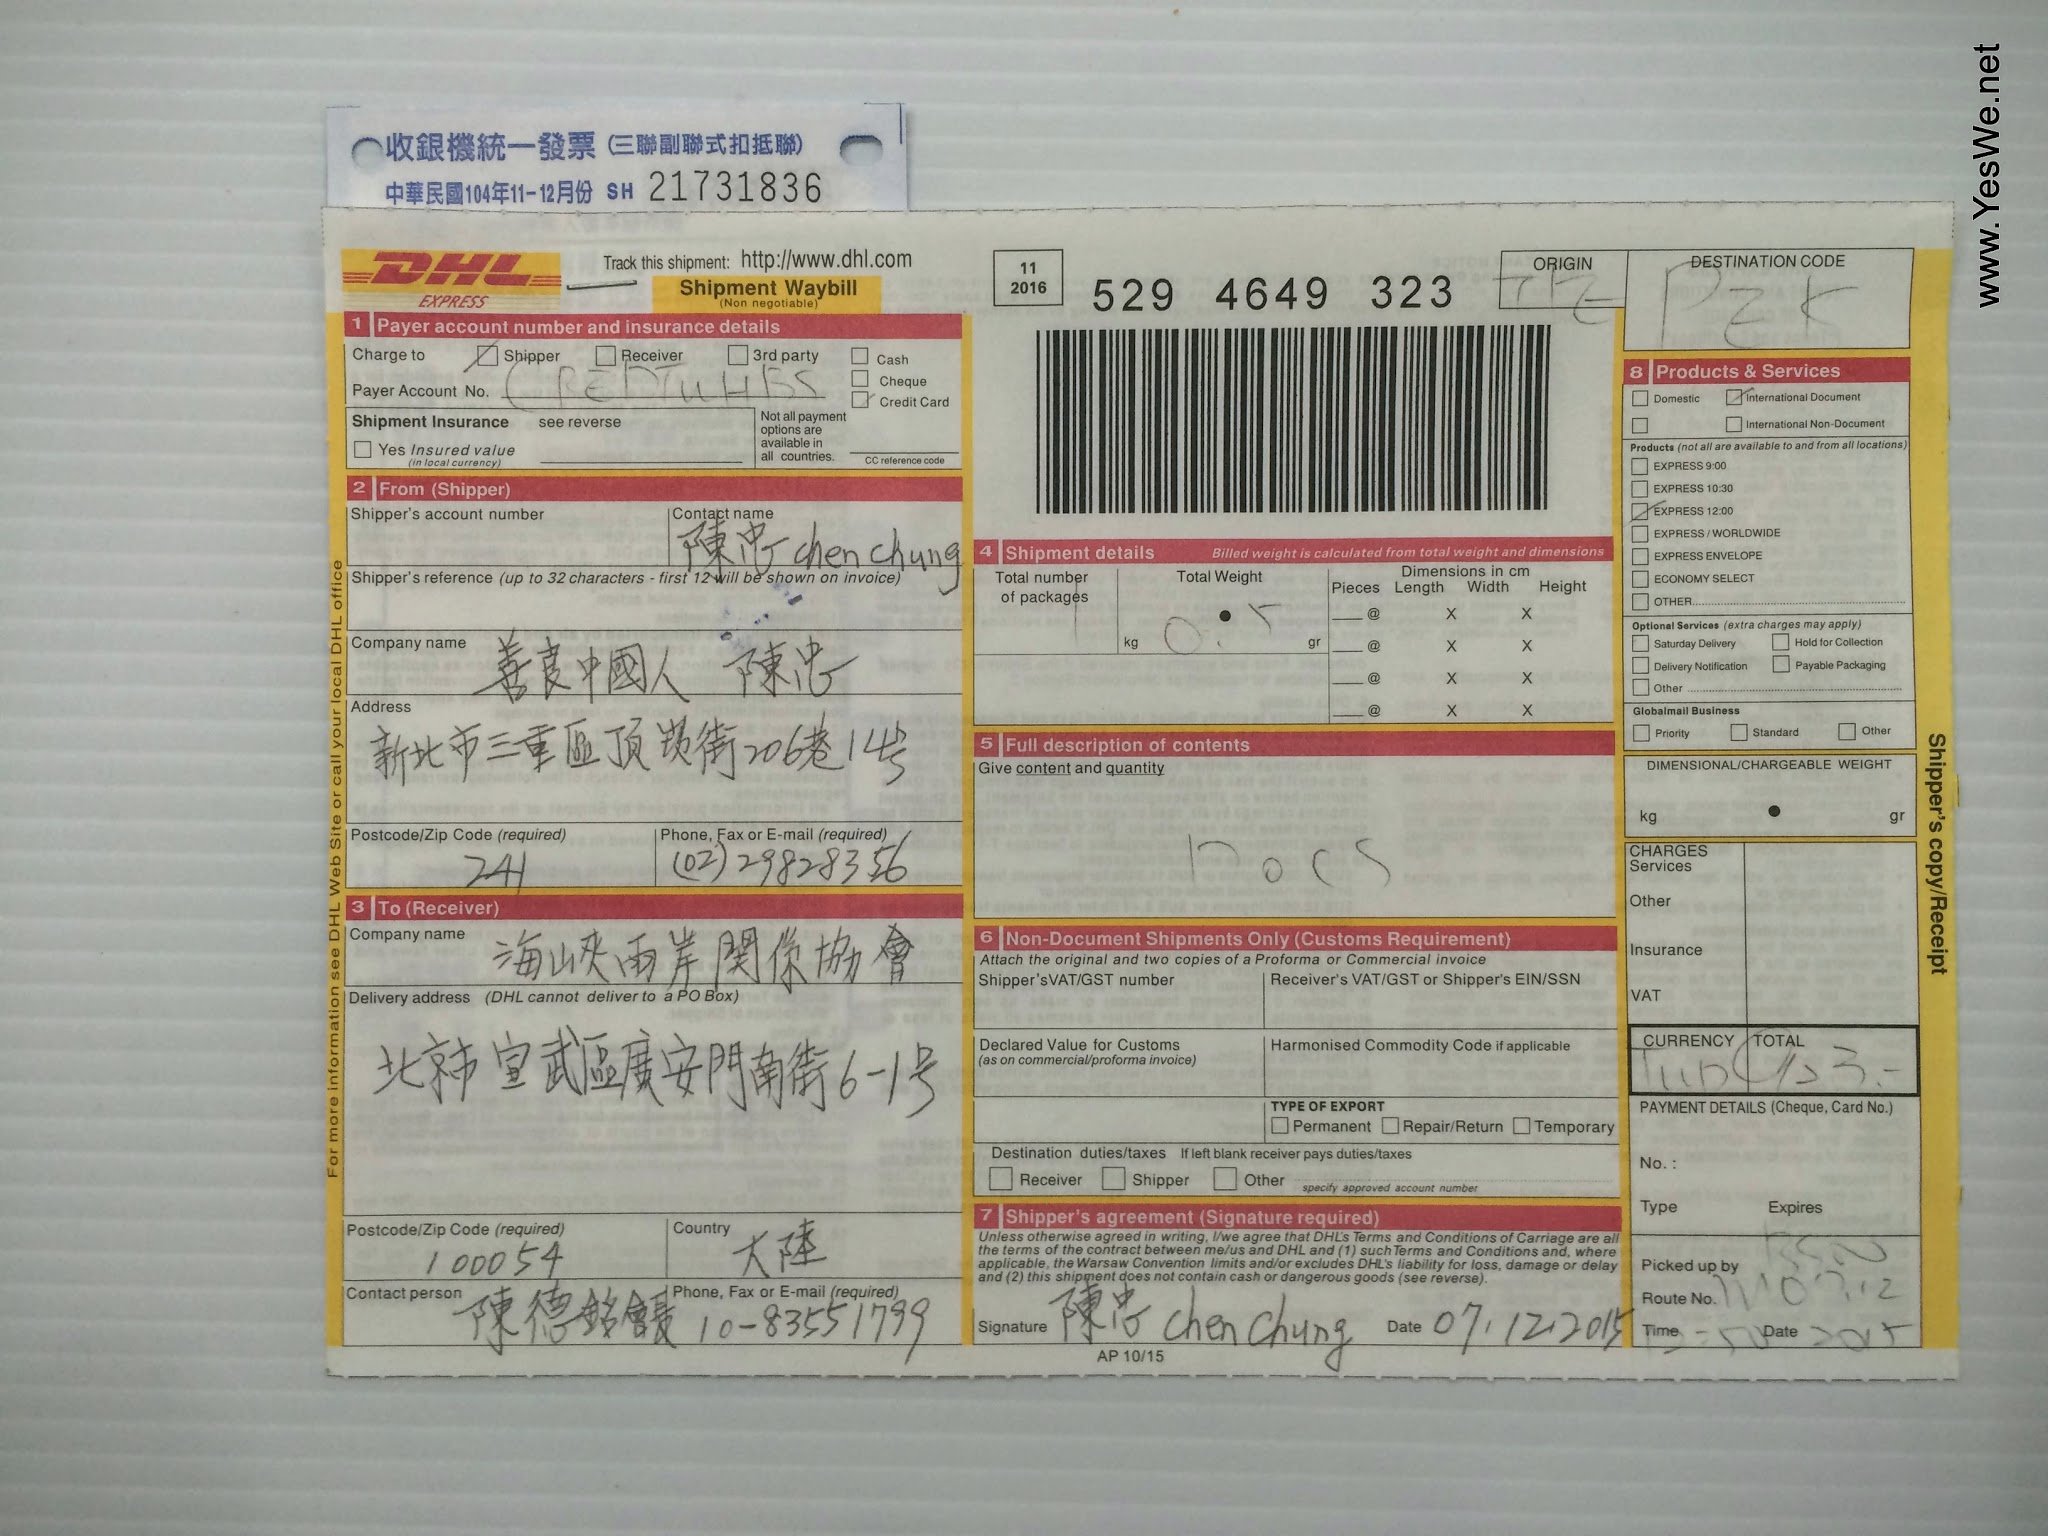 www.YesWe.net
收銀機統一發票 (三聯副聯式扣抵聯)
中華民國104年11-12月份 SH 21731836
DHL
EXPRESS
Track this shipment: http://www.dhl.com
Shipment Waybill
(Non negotiable)
11
2016
529 4649 323
ORIGIN
DESTINATION CODE
1 Payer account number and insurance details
Charge to Shipper Receiver 3rd party Cash
Cheque
Payer Account No.
Credit Card
Shipment Insurance see reverse
Yes Insured value
(in local currency)
Not all payment
options are
available in
all countries.
CC reference code
2 From (Shipper)
Shipper's account number
Contact name
陳忠 chen chung
Shipper's reference (up to 32 characters - first 12 will be shown on invoice)
Company name
善良中國人 陳忠
Address
新北市三重區頂崁街206巷14号
Postcode/Zip Code (required)
241
Phone, Fax or E-mail (required)
(02)29828356
3 To (Receiver)
Company name
海峽兩岸関係協會
Delivery address (DHL cannot deliver to a PO Box)
北京市宣武區廣安門南街6-1号
Postcode/Zip Code (required)
100054
Country
大陸
Contact person
陳德銘會長
Phone, Fax or E-mail (required)
10-83551799
For more information see DHL Web Site or call your local DHL office
4 Shipment details Billed weight is calculated from total weight and dimensions
Total number
of packages
1
Total Weight
kg 0.5 gr
Dimensions in cm
Pieces Length Width Height
@ X X
@ X X
@ X X
@ X X
5 Full description of contents
Give content and quantity
Docs
6 Non-Document Shipments Only (Customs Requirement)
Attach the original and two copies of a Proforma or Commercial invoice
Shipper'sVAT/GST number
Receiver's VAT/GST or Shipper's EIN/SSN
Declared Value for Customs
(as on commercial/proforma invoice)
Harmonised Commodity Code if applicable
TYPE OF EXPORT
Permanent Repair/Return Temporary
Destination duties/taxes If left blank receiver pays duties/taxes
Receiver Shipper Other
specify approved account number
7 Shipper's agreement (Signature required)
Unless otherwise agreed in writing, I/we agree that DHL's Terms and Conditions of Carriage are all
the terms of the contract between me/us and DHL and (1) such Terms and Conditions and, where
applicable, the Warsaw Convention limits and/or excludes DHL's liability for loss, damage or delay
and (2) this shipment does not contain cash or dangerous goods (see reverse).
Signature 陳忠 chen chung Date 07.12.2015
AP 10/15
8 Products & Services
Domestic International Document
International Non-Document
Products (not all are available to and from all locations)
EXPRESS 9:00
EXPRESS 10:30
EXPRESS 12:00
EXPRESS / WORLDWIDE
EXPRESS ENVELOPE
ECONOMY SELECT
OTHER
Optional Services (extra charges may apply)
Saturday Delivery Hold for Collection
Delivery Notification Payable Packaging
Other
Globalmail Business
Priority Standard Other
DIMENSIONAL/CHARGEABLE WEIGHT
kg gr
CHARGES
Services
Other
Insurance
VAT
CURRENCY TOTAL
PAYMENT DETAILS (Cheque, Card No.)
No. :
Type Expires
Picked up by
Route No.
Time Date 2015
Shipper's copy/Receipt